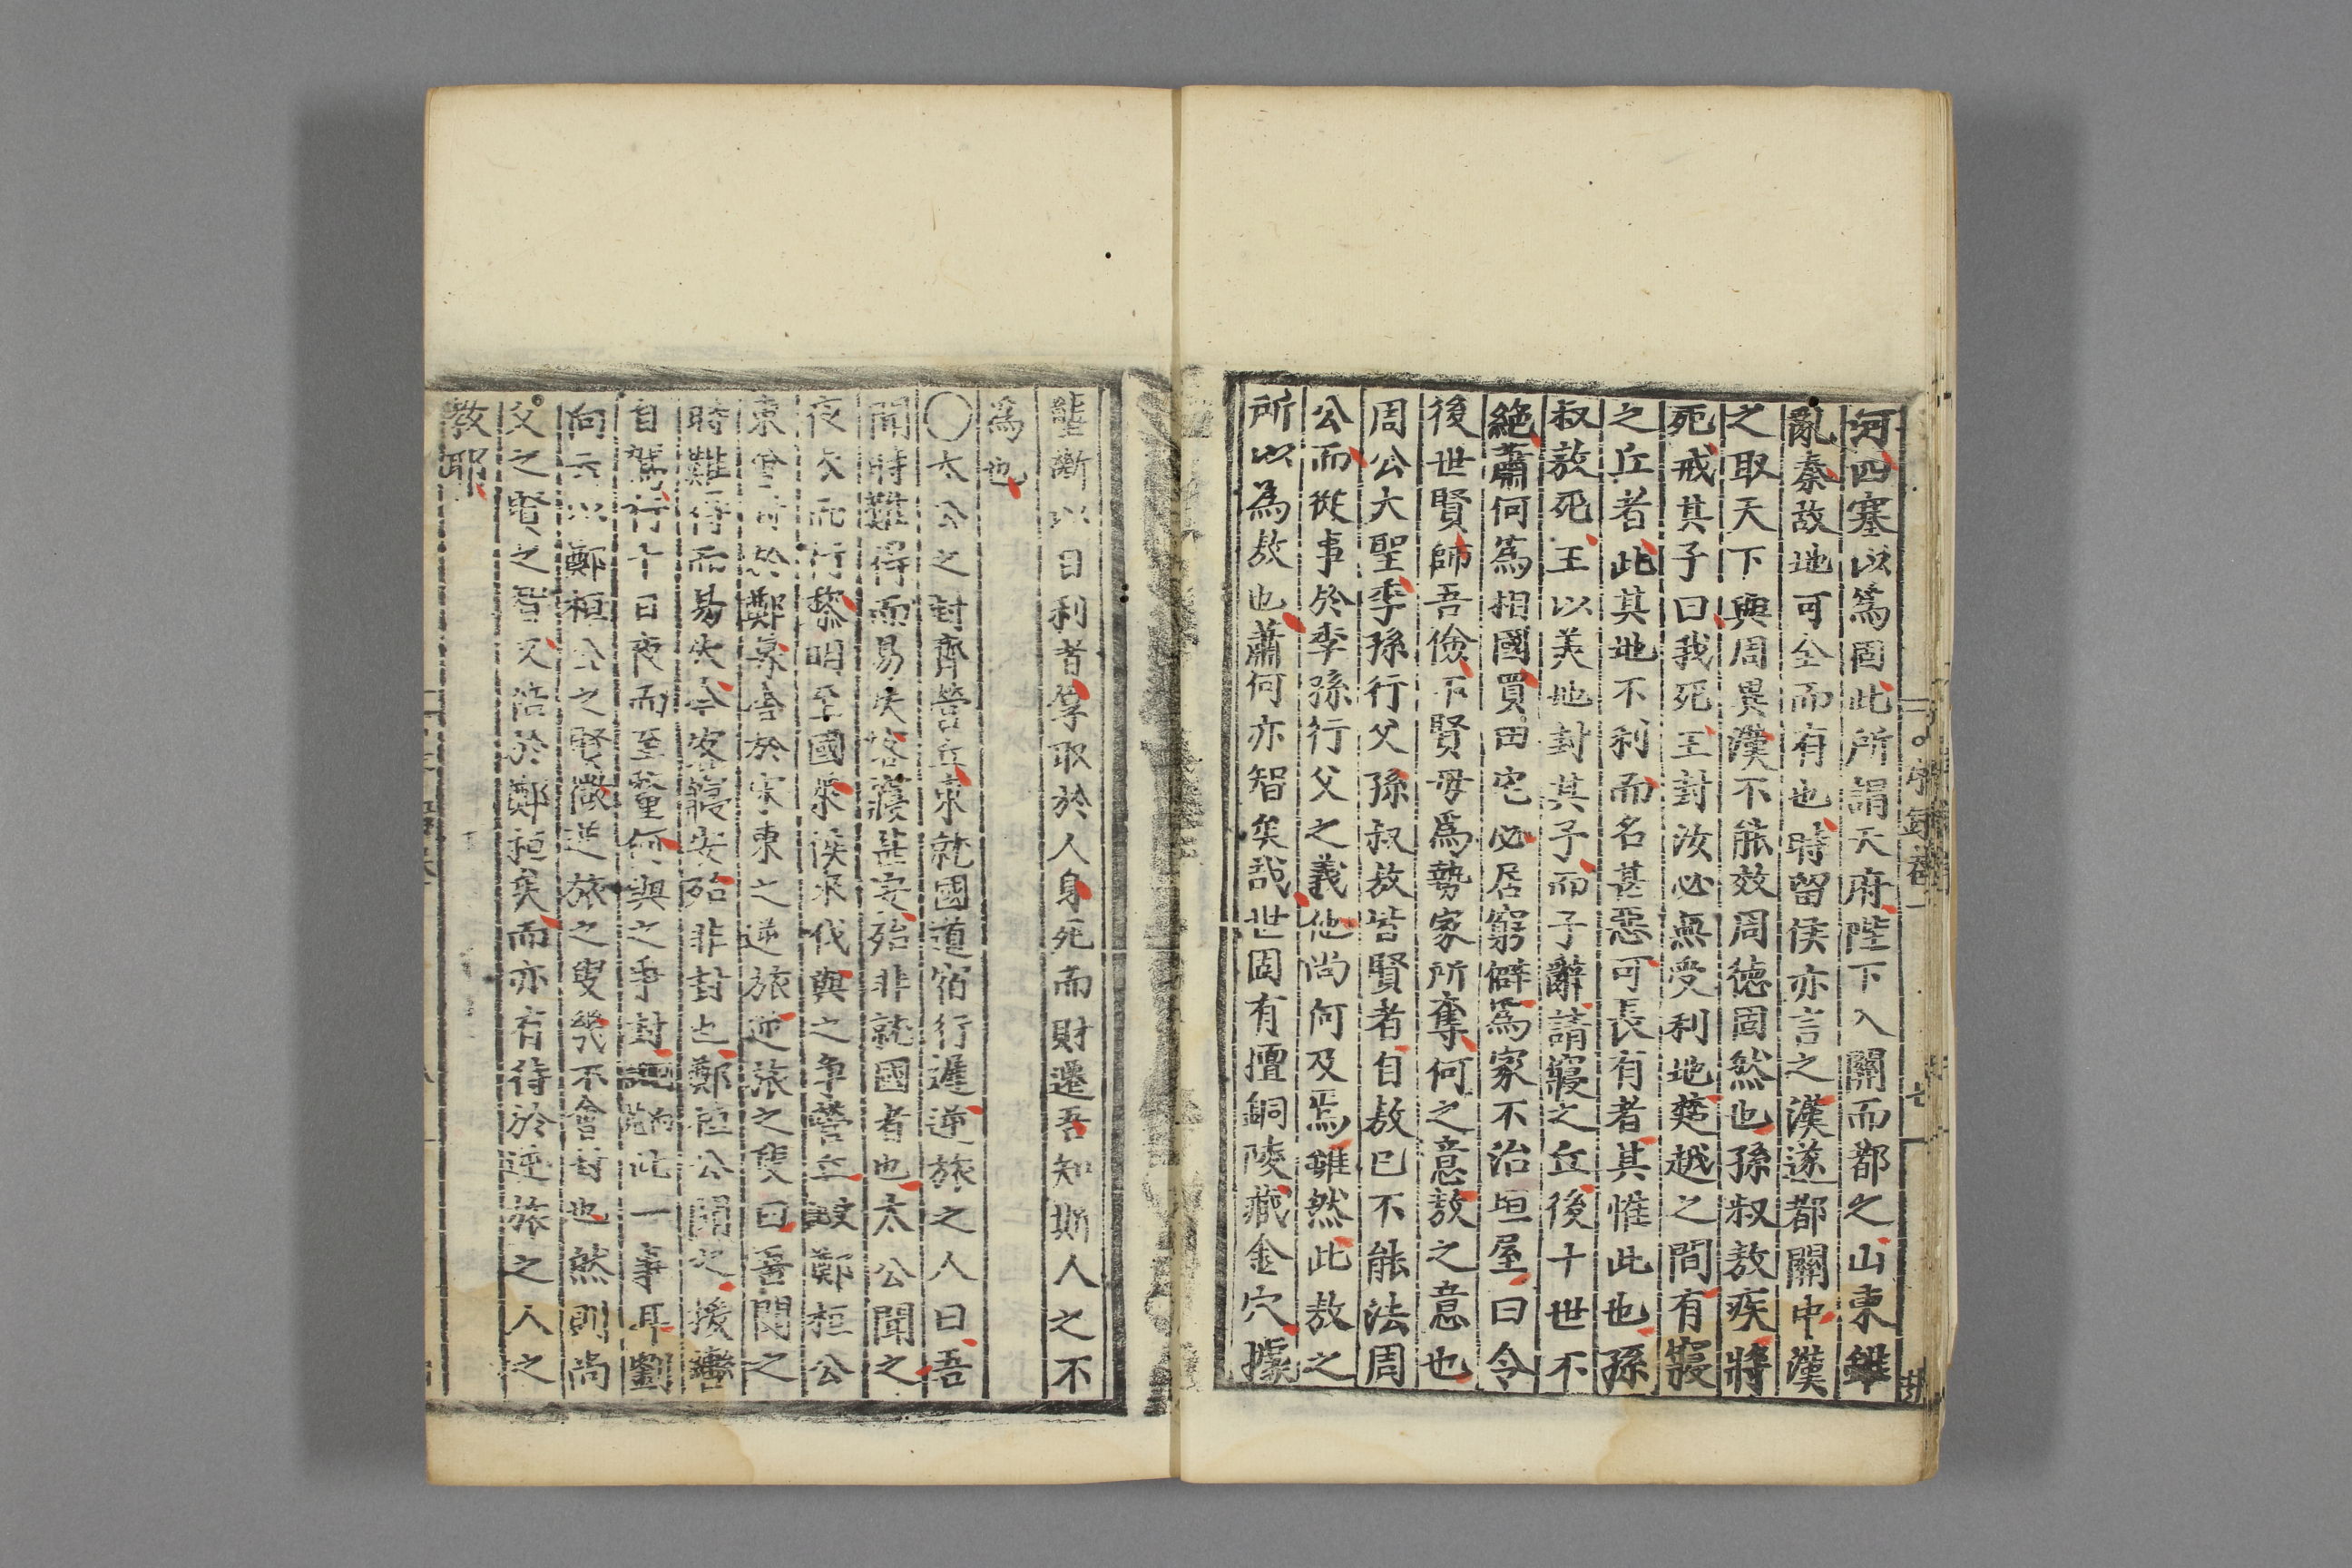 河四塞以爲固此所謂天府陛下入關而都之山東雖
亂秦故地可全而有也時留侯亦言之漢遂都關中漢
之取天下與周異漢不能效周德固然也孫叔敖疾將
死戒其子曰我死王封汝必無受利地楚越之間有寢
之丘者此其地不利而名甚惡可長有者其惟此也孫
叔敖死王以美地封其子而子辭請寢之丘後十世不
絶蕭何爲相國買田宅必居窮僻爲家不治垣屋曰令
後世賢師吾儉不賢毋爲勢家所奪何之意敖之意也
周公大聖季孫行父孫叔敖皆賢者自敖已不能法周
公而從事於季孫行父之義他尚何及焉雖然此敖之
所以爲敖也蕭何亦智矣哉世固有擅銅陵藏金穴據
壟斷以日利者孳取於人身死而財遷吾知斯人之不
爲也
○太公之封齊營丘東就國道宿行遲逆旅之人曰吾
聞時難得而易失客寢甚安殆非就國者也太公聞之
夜衣而行黎明至國萊侯來伐與之爭營丘設鄭桓公
東會封於鄭暮舍於宋東之逆旅逆旅之叟曰吾聞之
時難得而易失今客寢安殆非封也鄭桓公聞之援轡
自駕行十日夜而至釐何與之爭封 此一事耳劉
向云以鄭桓公之賢微逆旅之叟幾不會封也然則尚
父之賢之智又浩於鄭桓矣而亦有待於逆旅之人之
教耶